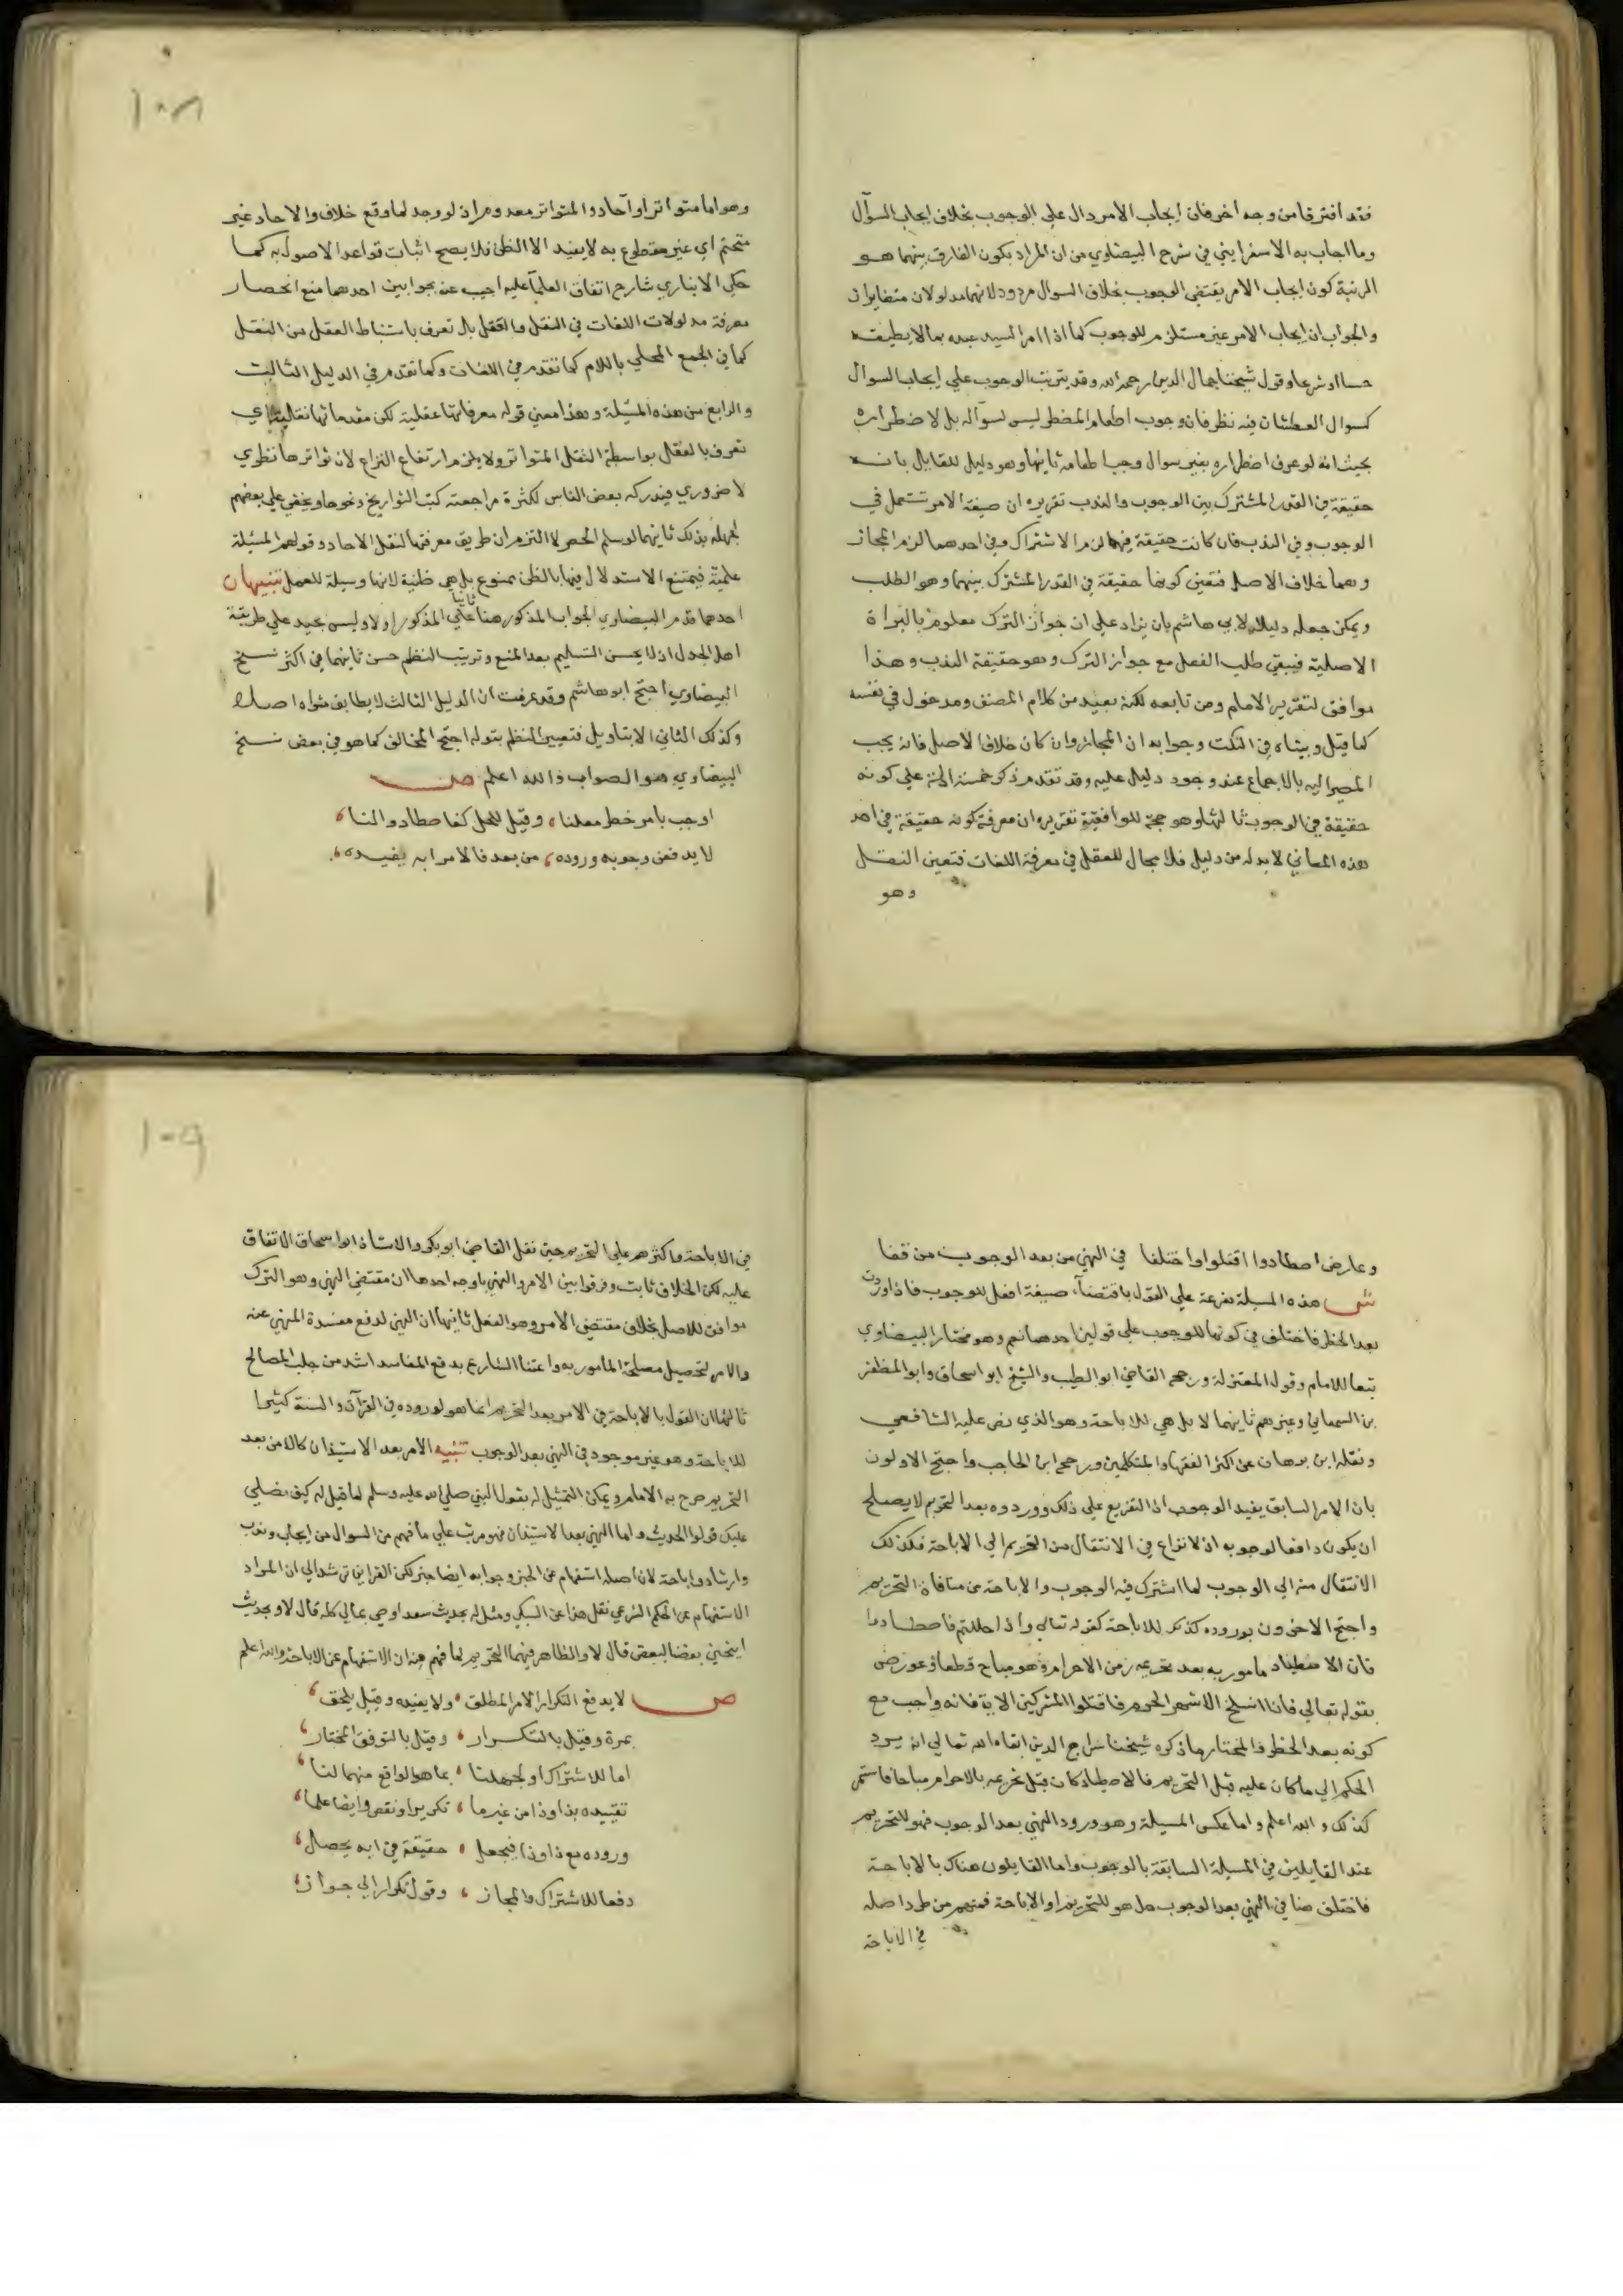 فقد افترقا من وجه اخر فان ايجاب الامر دال على الوجوب بخلاف ايجاب السوآل
وما اجاب به الاسفرايني في شرح البيضاوي من ان المراد بكون الفارق بينهما هو
الرتبة كون ايجاب الامر يقتضي الوجوب بخلاف السوال مردود لانهما مدلولان متغايران
والجواب ان ايجاب الامر غير مستلزم للوجوب كما اذا امر السيد عبده بما لا يطيقه
حسا او شرعا وقول شيخنا جمال الدين رحمه الله وقد يترتب الوجوب على ايجاب السوال
كسوال العطشان فيه نظر فان وجوب اطعام المضطر ليس لسوآله بل لاضطراره
بحيث انه لو عرف اضطراره بغير سوال وجب اطعامه ثانيها وهو دليل للقايل بانه
حقيقة في القدر المشترك بين الوجوب والندب تقريره ان صيغة الامر تستعمل في
الوجوب وفي الندب فان كانت حقيقة فيهما لزم الاشتراك وفي احدهما لزم المجاز
وهما خلاف الاصل فتعين كونها حقيقة في القدر المشترك بينهما وهو الطلب
ويمكن جعله دليلا لابي هاشم بان يزاد على ان جواز الترك معلوم بالبراة
الاصلية فيبقى طلب الفعل مع جواز الترك وهو حقيقة الندب وهذا
موافق لتقرير الامام ومن تابعه لكنه بعيد من كلام المصنف ومدخول في نفسه
كما قيل وبيناه في النكت وجوابه ان المجاز وان كان خلاف الاصل فانه يجب
المصير اليه بالاجماع عند وجود دليل عليه وقد تقدم ذكر خمسة ادلة على كونه
حقيقة في الوجوب ثالثها وهو حجة للواقفية تقريره ان معرفة كونه حقيقة في احد
هذه المعاني لابد له من دليل فلا مجال للعقل في معرفة اللغات فتعين النقل
وهو
١٠٨
وهو اما متواتر او آحاد والمتواتر معدوم اذ لو وجد لما وقع خلاف والاحاد غير
متحتم اي غير مقطوع به لا يفيد الا الظن فلا يصح اثبات قواعد الاصول به كما
حكى الانباري شارح اتفاق العلمآ عليه اجيب عنه بجوابين احدهما منع انحصار
معرفة مدلولات اللغات في النقل والعقل بل تعرف باستنباط العقل من النقل
كما في الجمع المحلى باللام كما تقدم في اللغات وكما تقدم في الدليل الثالث
والرابع من هذه المسيلة وهذا معنى قوله معرفاتها عقلية لكن مقدماتها نقلية اي
تعرف بالعقل بواسطة النقل المتواتر ولا يلزم ارتفاع النزاع لان تواترها نظري
لا ضروري فيدركه بعض الناس لكثرة مراجعته كتب التواريخ ونحوها ويخفى على بعضهم
لجهله بذلك ثانيهما لو سلم الحصر لا التزم ان طريق معرفتها لنقل الاحاد وقولهم المسيلة
علمية فيمتنع الاستدلال فيها بالظن ممنوع بل هي ظنية لانها وسيلة للعمل تنبيهان
احدهما قدم البيضاوي الجواب المذكور هنا ثانيا على المذكور اولا وليس بجيد على طريقة
اهل الجدل اذ لا يحسن التسليم بعد المنع وترتيب النظم حسن ثانيهما في اكثر نسخ
البيضاوي احتج ابو هاشم وقد عرفت ان الدليل الثالث لا يطابق مدعاه اصلا
وكذلك الثاني الا بتاويل فتعبير النظم بقوله احتج المخالف كما هو في بعض نسخ
البيضاوي هو الصواب والله اعلم ص
اوجب بامر خطر معلنا ، وقيل للحل كفاصطادوا لنا ،
لا يدفعن وجوبه وروده ، من بعد فالامر ابه يفيده ،
وعارض اصطادوا اقتلوا واختلفا في النهي من بعد الوجوب من قفا
ش هذه المسيلة مفرعة على القول باقتضآء صيغة افعل للوجوب فاذا وردت
بعد الحظر فاختلف في كونها للوجوب على قولين احدهما نعم وهو مختار البيضاوي
تبعا للامام وقول المعتزلة ورجحه القاضي ابو الطيب والشيخ ابو اسحاق وابو المظفر
بن السمعاني وغيرهم ثانيهما لا بل هي للاباحة وهو الذي نص عليه الشافعي
ونقله ابن برهان عن اكثر الفقهاء والمتكلمين ورجحه ابن الحاجب واحتج الاولون
بان الامر السابق يفيد الوجوب اذ التفريع على ذلك ووروده بعد التحريم لا يصلح
ان يكون دافعا لوجوبه اذ لا نزاع في الانتقال من التحريم الى الاباحة فكذلك
الانتقال منه الى الوجوب لما اشترك فيه الوجوب والاباحة من منافاة التحريم
واحتج الاخرون بوروده كذلك للاباحة كقوله تعالى واذا حللتم فاصطادوا
فان الاصطياد مامور به بعد تحريمه زمن الاحرام وهو مباح قطعا وعورض
بقوله تعالى فاذا انسلخ الاشهر الحرم فاقتلوا المشركين الاية فانه واجب مع
كونه بعد الحظر والمختار ما ذكره شيخنا سراج الدين ابقاه الله تعالى انه يرد
الحكم الى ما كان عليه قبل التحريم فالاصطياد كان قبل تحريمه بالاحرام مباحا فاستمر
كذلك والله اعلم واما عكس المسيلة وهو ورود النهي بعد الوجوب فهو للتحريم
عند القايلين في المسيلة السابقة بالوجوب واما القايلون هناك بالاباحة
فاختلف هنا في النهي بعد الوجوب هل هو للتحريم او الاباحة فمنهم من طرد اصله
في الاباحة
١٠٩
في الاباحة واكثرهم على التحريم حتى نقل القاضي ابو بكر والاستاذ ابو اسحاق الاتفاق
عليه لكن الخلاف ثابت وفرقوا بين الامر والنهي باوجه احدها ان مقتضى النهي وهو الترك
موافق للاصل بخلاف مقتضى الامر وهو الفعل ثانيها ان النهي لدفع مفسدة المنهي عنه
والامر لتحصيل مصلحة المامور به واعتنا الشارع بدفع المفاسد اشد من جلب المصالح
ثالثها ان القول بالاباحة في الامر بعد التحريم انما هو لوروده في القرآن والسنة كثيرا
للاباحة وهو غير موجود في النهي بعد الوجوب تنبيه الامر بعد الاستيذان كالامر بعد
التحريم صرح به الامام ويمكن التمثيل له بقول النبي صلى الله عليه وسلم لما قيل له كيف نصلي
عليك قولوا الحديث واما النهي بعد الاستيذان فهو مرتب على ما فهم من السوال من ايجاب وندب
وارشاد واباحة لان اصله استفهام عن الخبر وجوابه ايضا خبر لكن القراين ترشد الى ان المراد
الاستفهام عن الحكم الشرعي نقل هذا عن السبكي ومثل له بحديث سعد اوصي بمالي كله قال لا وبحديث
اينحني بعضنا لبعض قال لا والظاهر فيهما التحريم لما فهم من ان الاستفهام عن الاباحة والله اعلم
ص لا يدفع التكرار الامر المطلق ، ولا يفيده وقيل يلحق ،
بمرة وقيل بالتكرار ، وقيل بالتوقف المختار ،
اما للاشتراك او لجهلنا ، بما هو الواقع منهما لنا ،
تقييده بذا وذا من غير ما ، تكرير او نقص وايضا علما ،
وروده مع ذا وذا فيجعل ، حقيقة في ابه يحصل ،
دفعا للاشتراك والمجاز ، وقول تكرار الى جواز ،